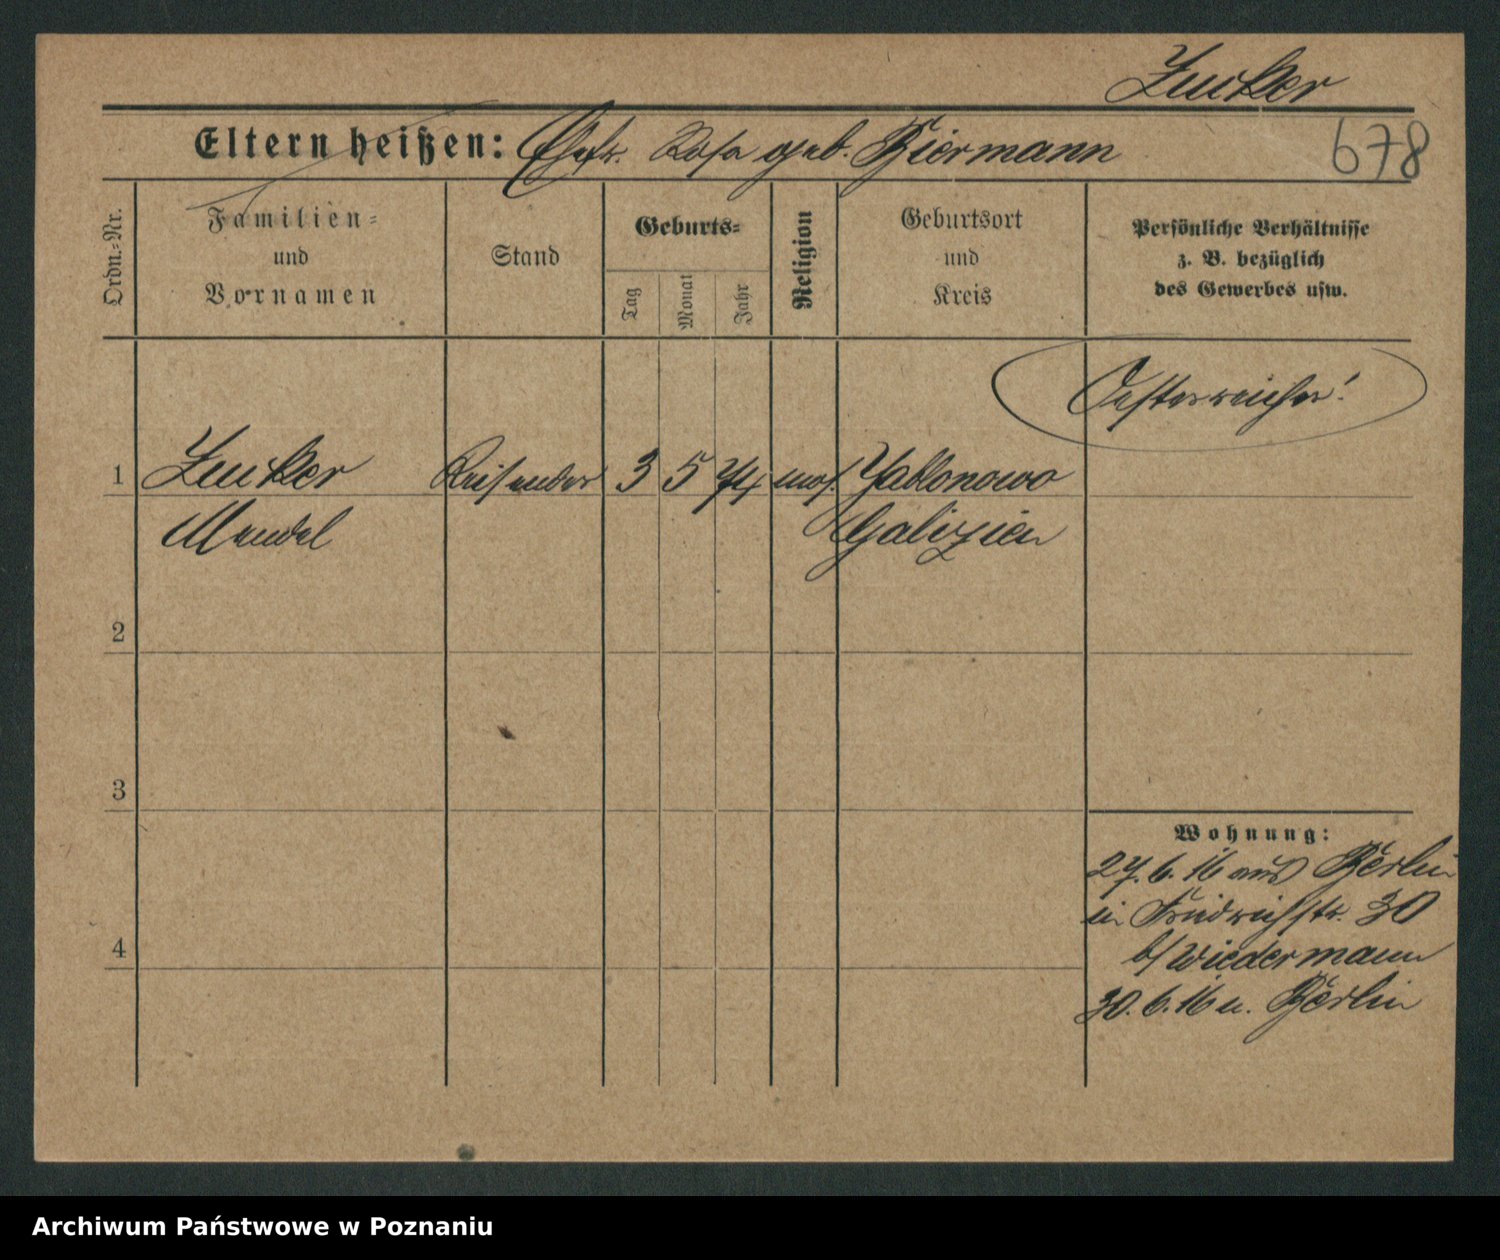 Zucker
Eltern heißen: Ehefr. Rosa geb. Biermann
678
Ordn.-Nr.
Familien-
und
Vornamen
Stand
Geburts-
Tag
Monat
Jahr
Religion
Geburtsort
und
Kreis
Persönliche Verhältnisse
z. B. bezüglich
des Gewerbes usw.
Oesterreicher!
1 Zucker Reisender 3 5 74 mos. Jablonowo
Mendel Galizien
2
3
4
Wohnung:
27.6.16 aus Berlin
in Friedrichstr. 30
b/ Wiedermann
30.6.16 n. Berlin
Archiwum Państwowe w Poznaniu